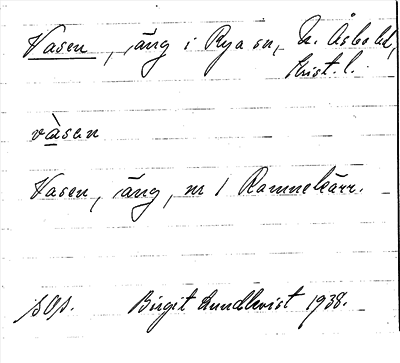 Vasen, äng i Rya sn, N. Åsbo hd,
Krist. l.
vàsen
Vasen, äng, nr 1 Ramnekärr.
sOp. Birgit Lundkvist 1938.